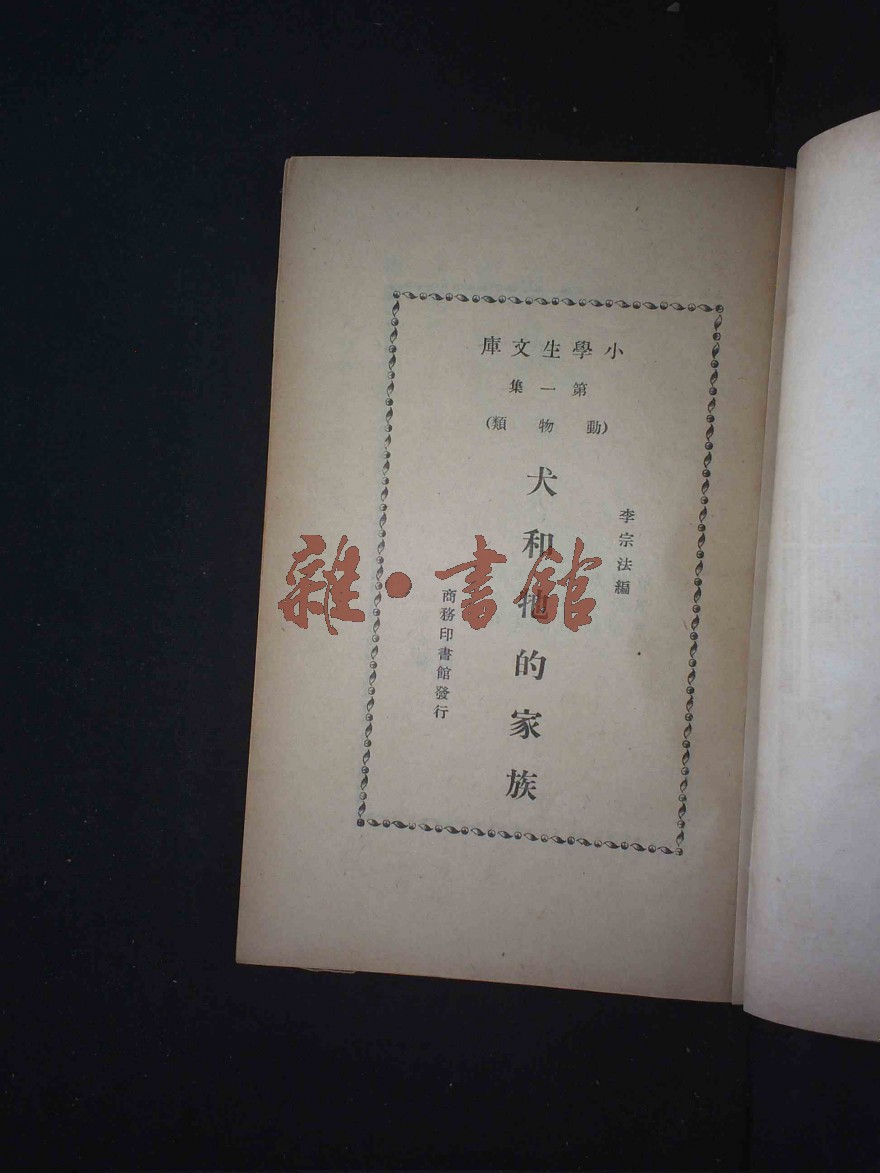 小學生文庫
第一集
(動物類)
李宗法編
犬和牠的家族
商務印書館發行
雜·書館